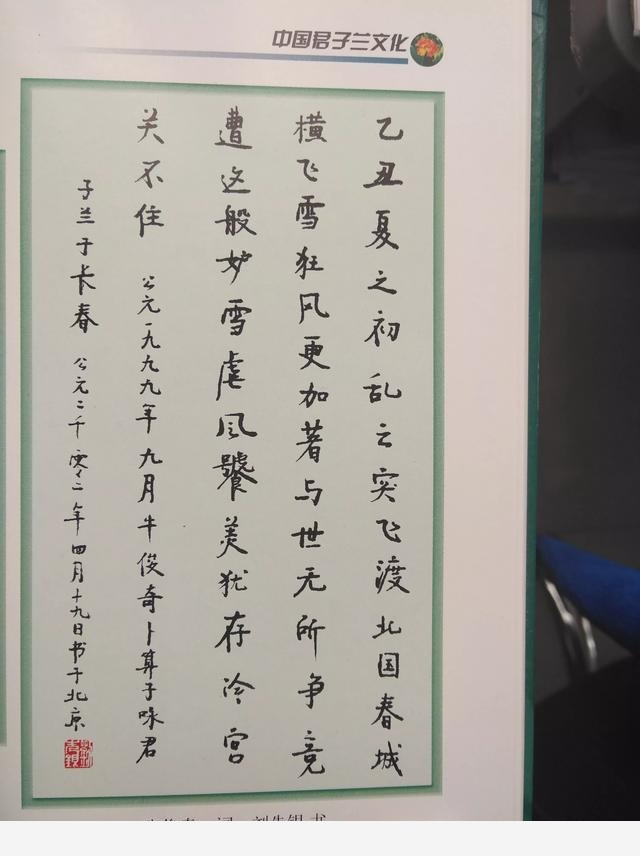 中国君子兰文化
乙丑夏之初乱云突飞渡北国春城
横飞雪狂风更加著与世无所争竞
遭这般妒雪虐风饕美犹存冷宫
关不住 公元一九九九年九月牛俊奇卜算子咏君
子兰于长春 公元二千零二年四月十九日书于北京